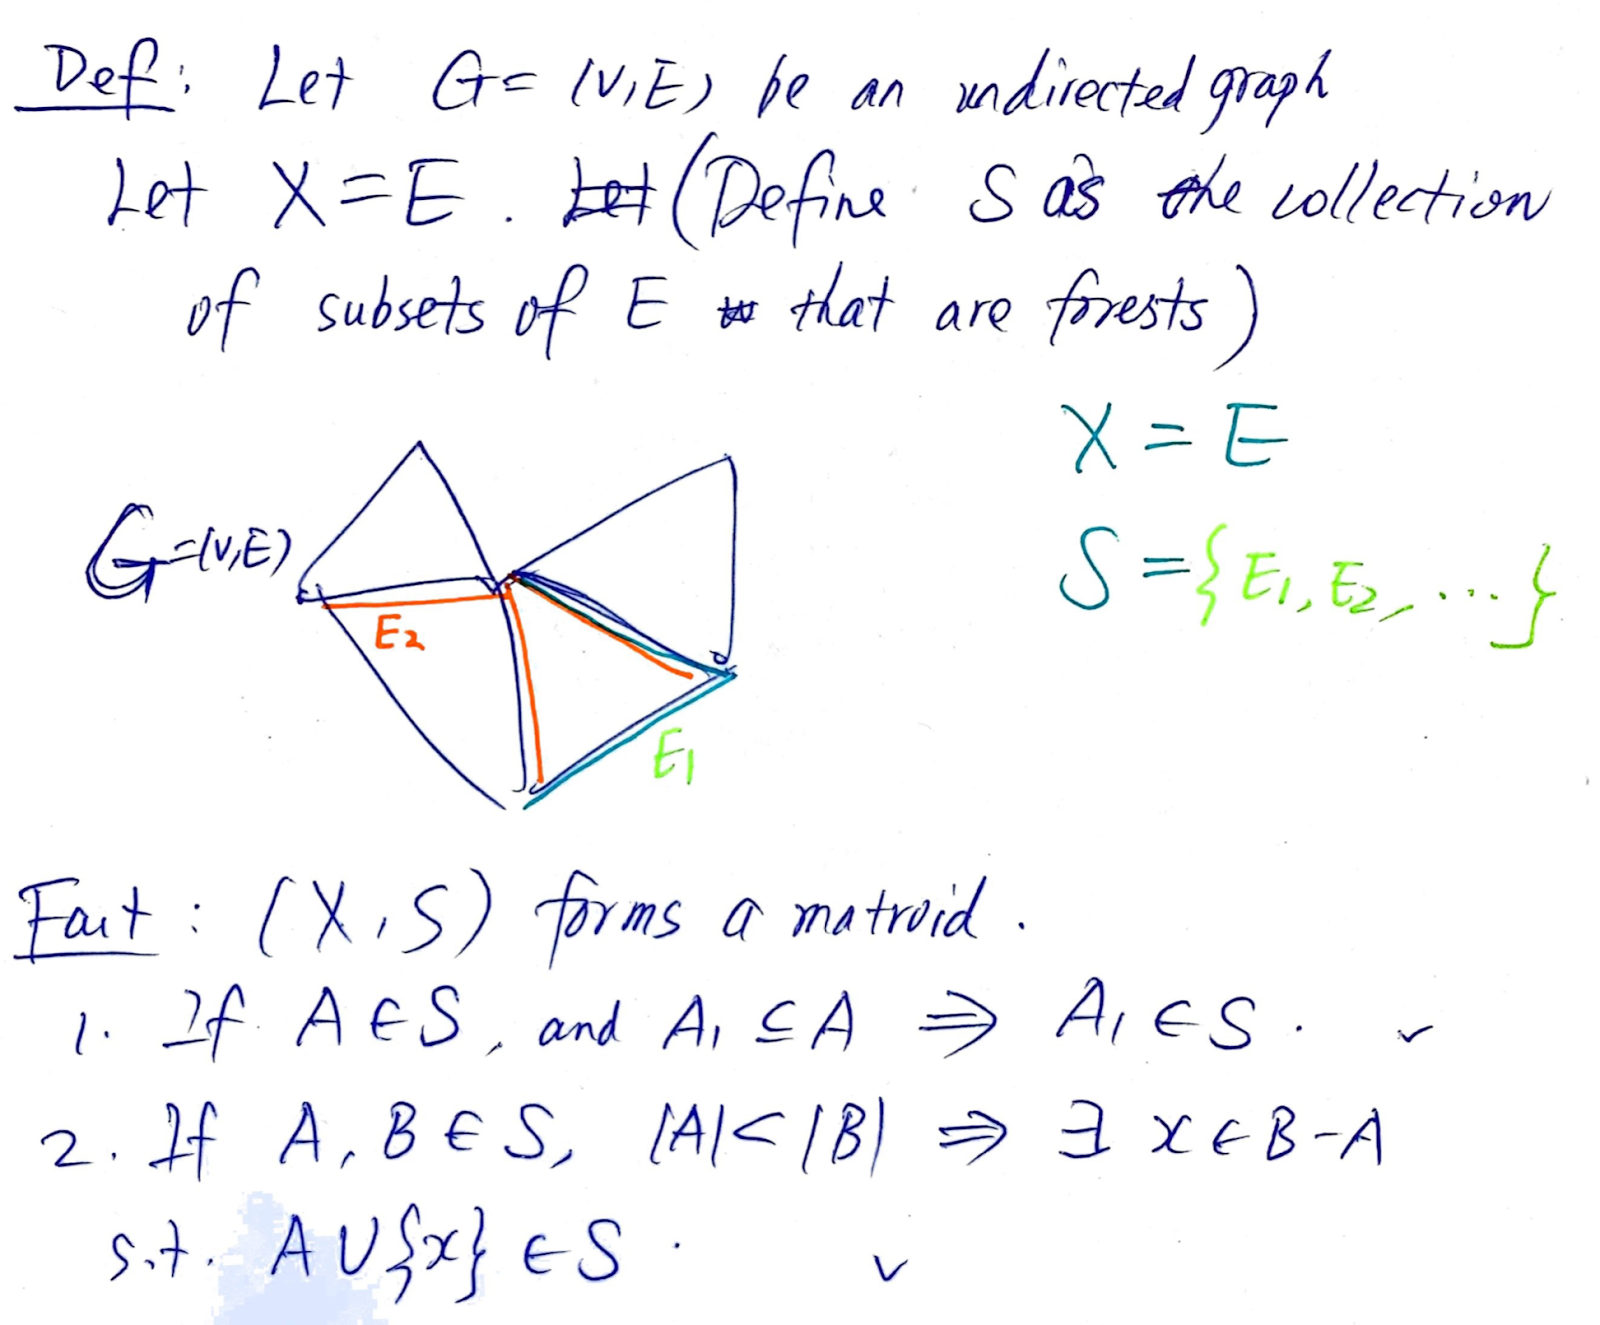 Def: Let G = (V, E) be an undirected graph
Let X = E. Let (Define S as the collection
of subsets of E that are forests)
X = E
G = (V, E)
S = {E1, E2, ...}
E2
E1
Fact: (X, S) forms a matroid.
1. If A ∈ S, and A₁ ⊆ A ⇒ A₁ ∈ S. ✓
2. If A, B ∈ S, |A| < |B| ⇒ ∃ x ∈ B - A
s.t. A ∪ {x} ∈ S. ✓